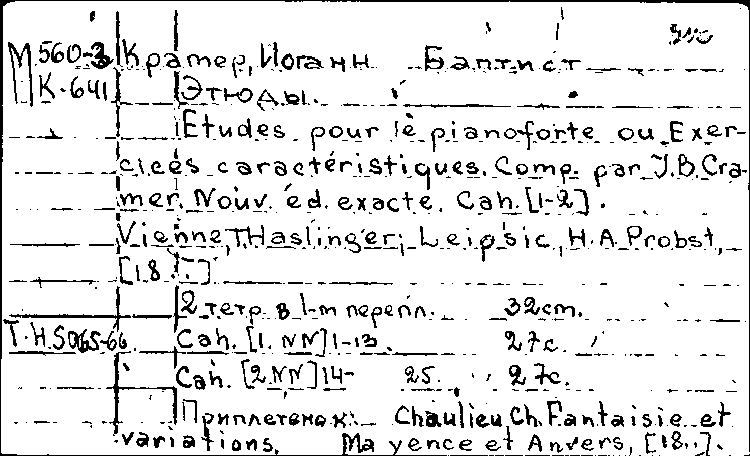 М 560-3 Крамер, Иоганн Баптист
К-641 Этюды.
Etudes pour le pianoforte ou Exer-
cices caractéristiques. Comp. par J.B. Cra-
mer. Nouv. éd. exacte. Cah. [1-2].
Vienne, T. Haslinger; Leipsic, H.A. Probst,
[18..]
2 тетр. в 1-м перепл. 32 cm.
T.H.5065-66. Cah. [1. NN] 1-13. 27 с.
Cah. [2. NN] 14- 25. 27 с.
Приплетено к: Chaulieu, Ch. Fantaisie et
variations. Mayence et Anvers, [18..].